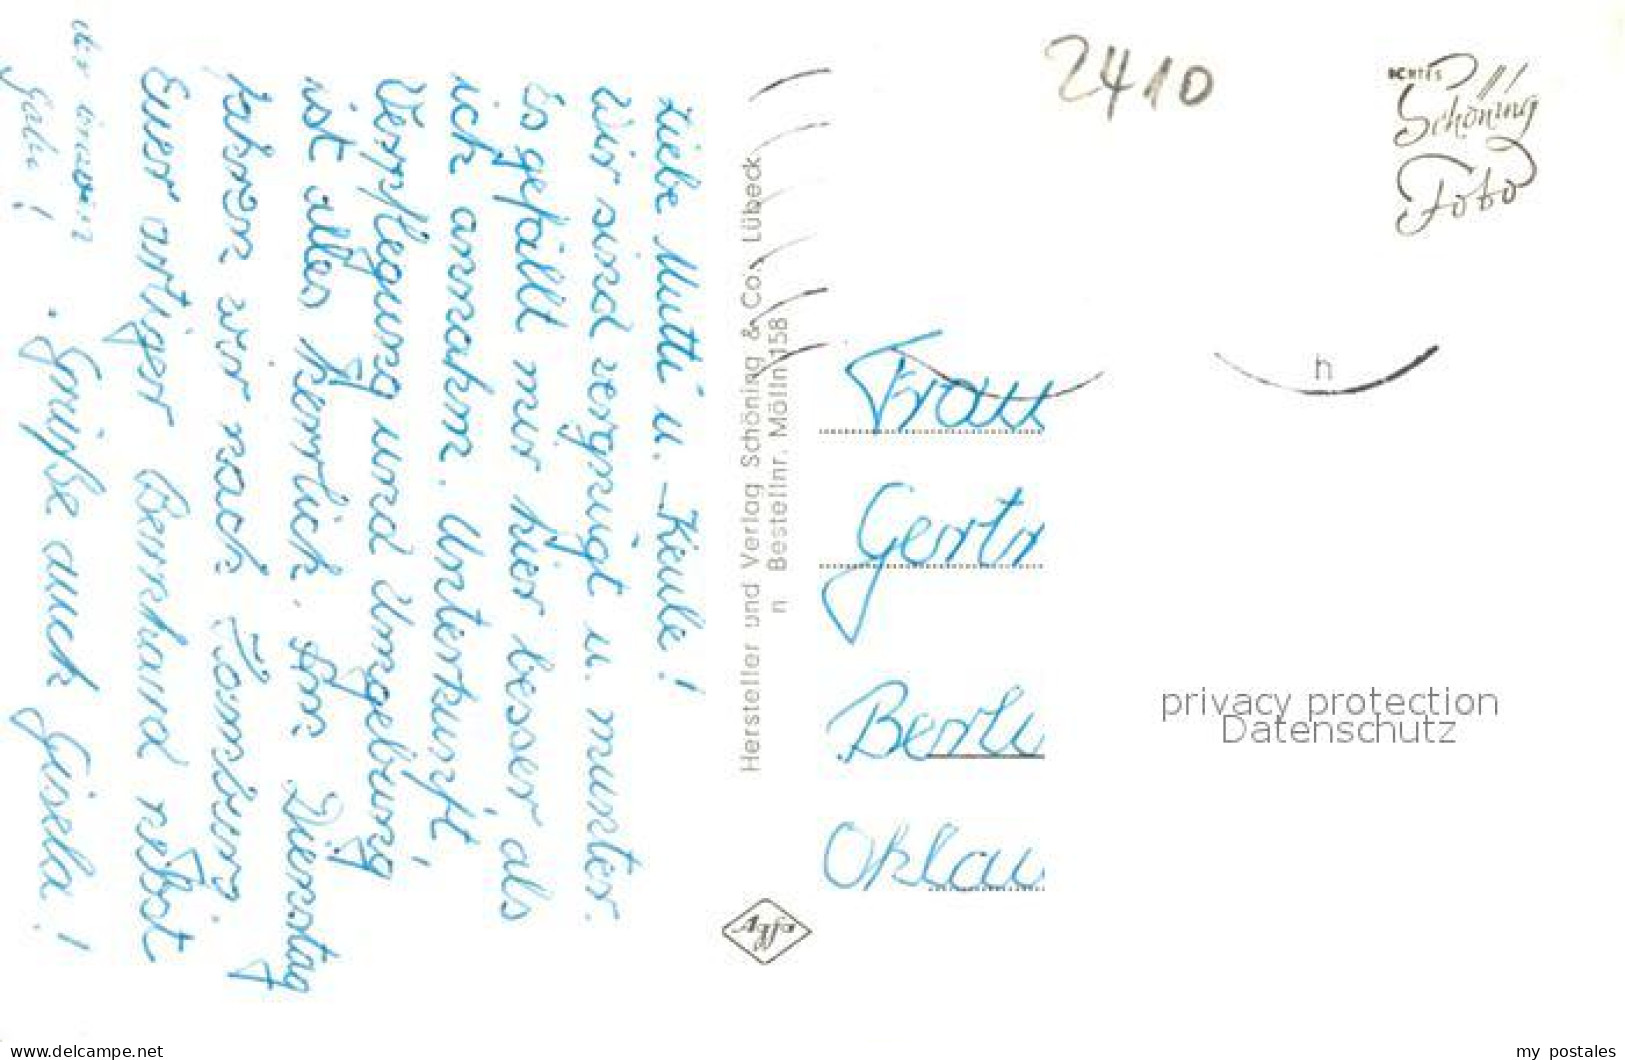 Liebe Mutti u. Keule!
Wir sind vergnügt u. munter.
Es gefällt mir hier besser als
ich annahm. Unterkunft,
Verpflegung und Umgebung
ist alles herrlich. Am Dienstag
fahren wir nach Hamburg.
Euer artiger Bernhard nebst
Grüße auch Gisela!
Hersteller und Verlag Schöning & Co. Lübeck
n Bestellnr. Mölln 158
Agfa
2410
ECHTES
Schöning
Foto
n
Frau
Gertr
Berli
privacy protection
Datenschutz
www.delcampe.net
my_postales